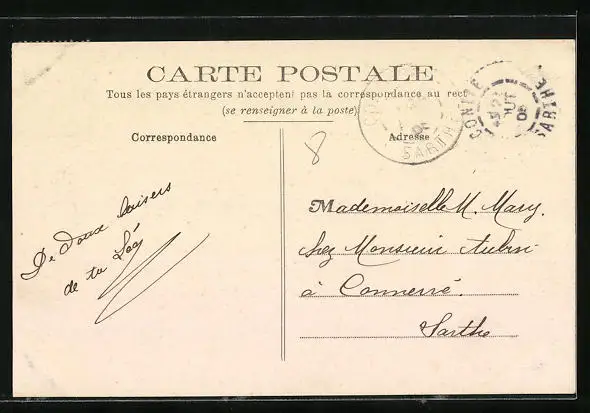 CARTE POSTALE
Tous les pays étrangers n'acceptent pas la correspondance au rect
(se renseigner à la poste)
Correspondance
Adresse
8
SARTHE
SARTHE
05
De doux baisers
de ta
Mademoiselle M. Mary.
chez Monsieur Aubin
à Connerré.
Sarthe